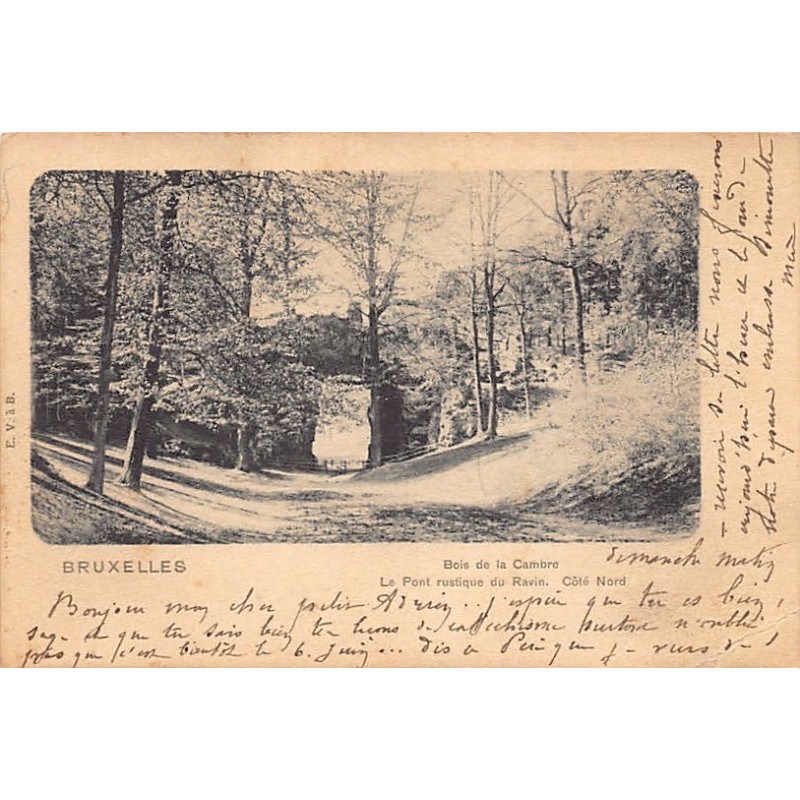 E. V. à B.
BRUXELLES
Bois de la Cambre
Le Pont rustique du Ravin. Côté Nord
dimanche matin
Bonjour mon cher petit Adrien.. j'espère que tu es bien
sage et que tu sais bien tes leçons de catéchisme surtout n'oublie
pas que c'est bientôt le 6 Juin... dis a que je viens de
recevoir sa lettre nous finirons
aujourd'hui l'heure de
notre embrasse Simonette